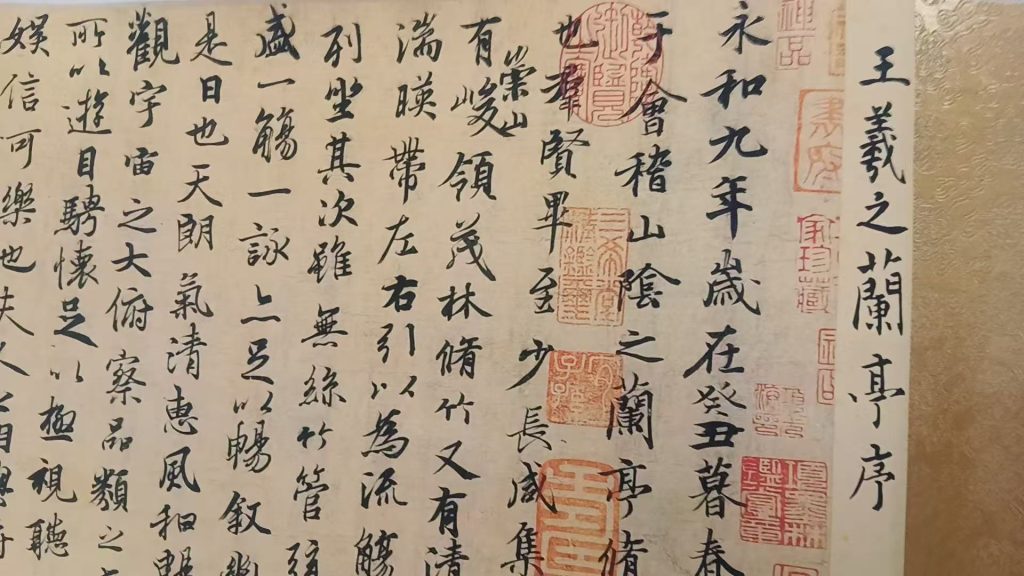 王羲之蘭亭序
永和九年歲在癸丑暮春
于會稽山陰之蘭亭脩
也群賢畢至少長咸集
崇山
有峻領茂林脩竹又有清
湍暎帶左右引以為流觴
列坐其次雖無絲竹管弦
盛一觴一詠亦足以暢叙幽
是日也天朗氣清惠風和暢
觀宇宙之大俯察品類之
所以遊目騁懷足以極視聽
娛信可樂也夫人之相與
神品
家珍藏